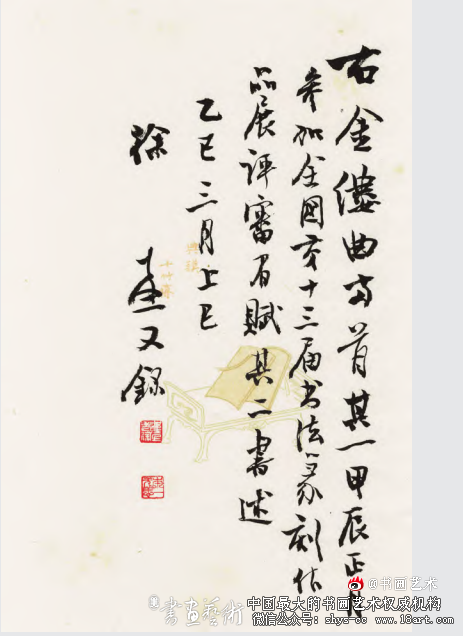 右金縷曲两首其一甲辰正月
参加全國第十三届书法篆刻作
品展評審有赋其二書述
乙巳三月上巳
徐本一又録
@书画艺术
書畫藝術
中国最大的书画艺术权威机构
微信公众号：shys-cc www.18art.com